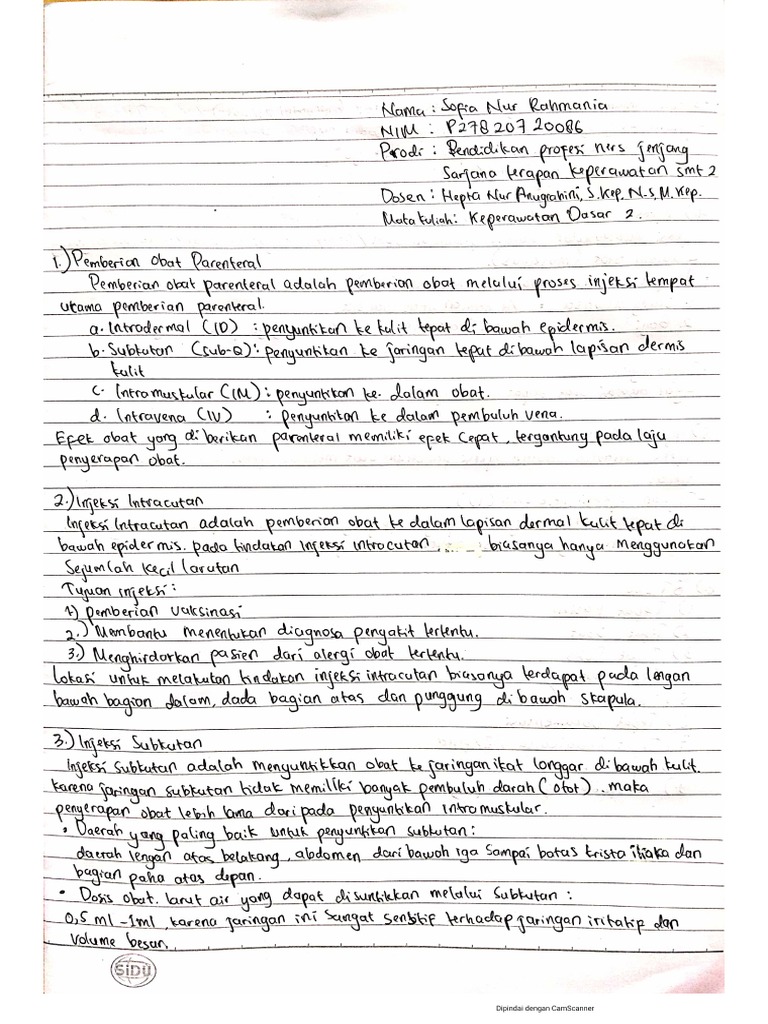 Nama : Sofia Nur Rahmania
NIM : P27820720086
Prodi : Pendidikan profesi ners jenjang
Sarjana terapan keperawatan smt 2
Dosen : Hepta Nur Anugrahini, S.Kep, N-s, M.Kep.
Mata kuliah : Keperawatan Dasar 2.
1.) Pemberian Obat Parenteral
Pemberian obat parenteral adalah pemberian obat melalui proses injeksi tempat
utama pemberian parenteral.
a. Intradermal (ID) : penyuntikan ke kulit tepat di bawah epidermis.
b. Subkutan (sub-Q) : penyuntikan ke jaringan tepat dibawah lapisan dermis
kulit
c. Intramuskular (IM) : penyuntikan ke dalam obat.
d. Intravena (IV) : penyuntikan ke dalam pembuluh vena.
Efek obat yang di berikan parenteral memiliki efek cepat, tergantung pada laju
penyerapan obat.
2.) Injeksi Intracutan
Injeksi Intracutan adalah pemberian obat ke dalam lapisan dermal kulit tepat di
bawah epidermis. pada tindakan injeksi introcutan biasanya hanya menggunakan
sejumlah kecil larutan
Tujuan injeksi :
1.) pemberian vaksinasi
2.) Membantu menentukan diagnosa penyakit tertentu.
3.) Menghirdarkan pasien dari alergi obat tertentu.
Lokasi untuk melakukan tindakan injeksi intracutan biasanya terdapat pada lengan
bawah bagian dalam, dada bagian atas dan punggung di bawah skapula.
3.) Injeksi Subkutan
Injeksi Subkutan adalah menyuntikkan obat ke jaringan ikat longgar dibawah kulit.
karena jaringan subkutan tidak memiliki banyak pembuluh darah (otot). maka
penyerapan obat lebih lama daripada penyuntikan intramuskular.
• Daerah yang paling baik untuk penyuntikan subkutan :
daerah lengan atas belakang, abdomen dari bawah iga sampai batas krista iliaka dan
bagian paha atas depan.
• Dosis obat larut air yang dapat disuntikkan melalui subkutan :
0,5 ml - 1 ml, karena jaringan ini sangat sensitip terhadap jaringan iritatip dan
volume besar.
SIDU
Dipindai dengan CamScanner